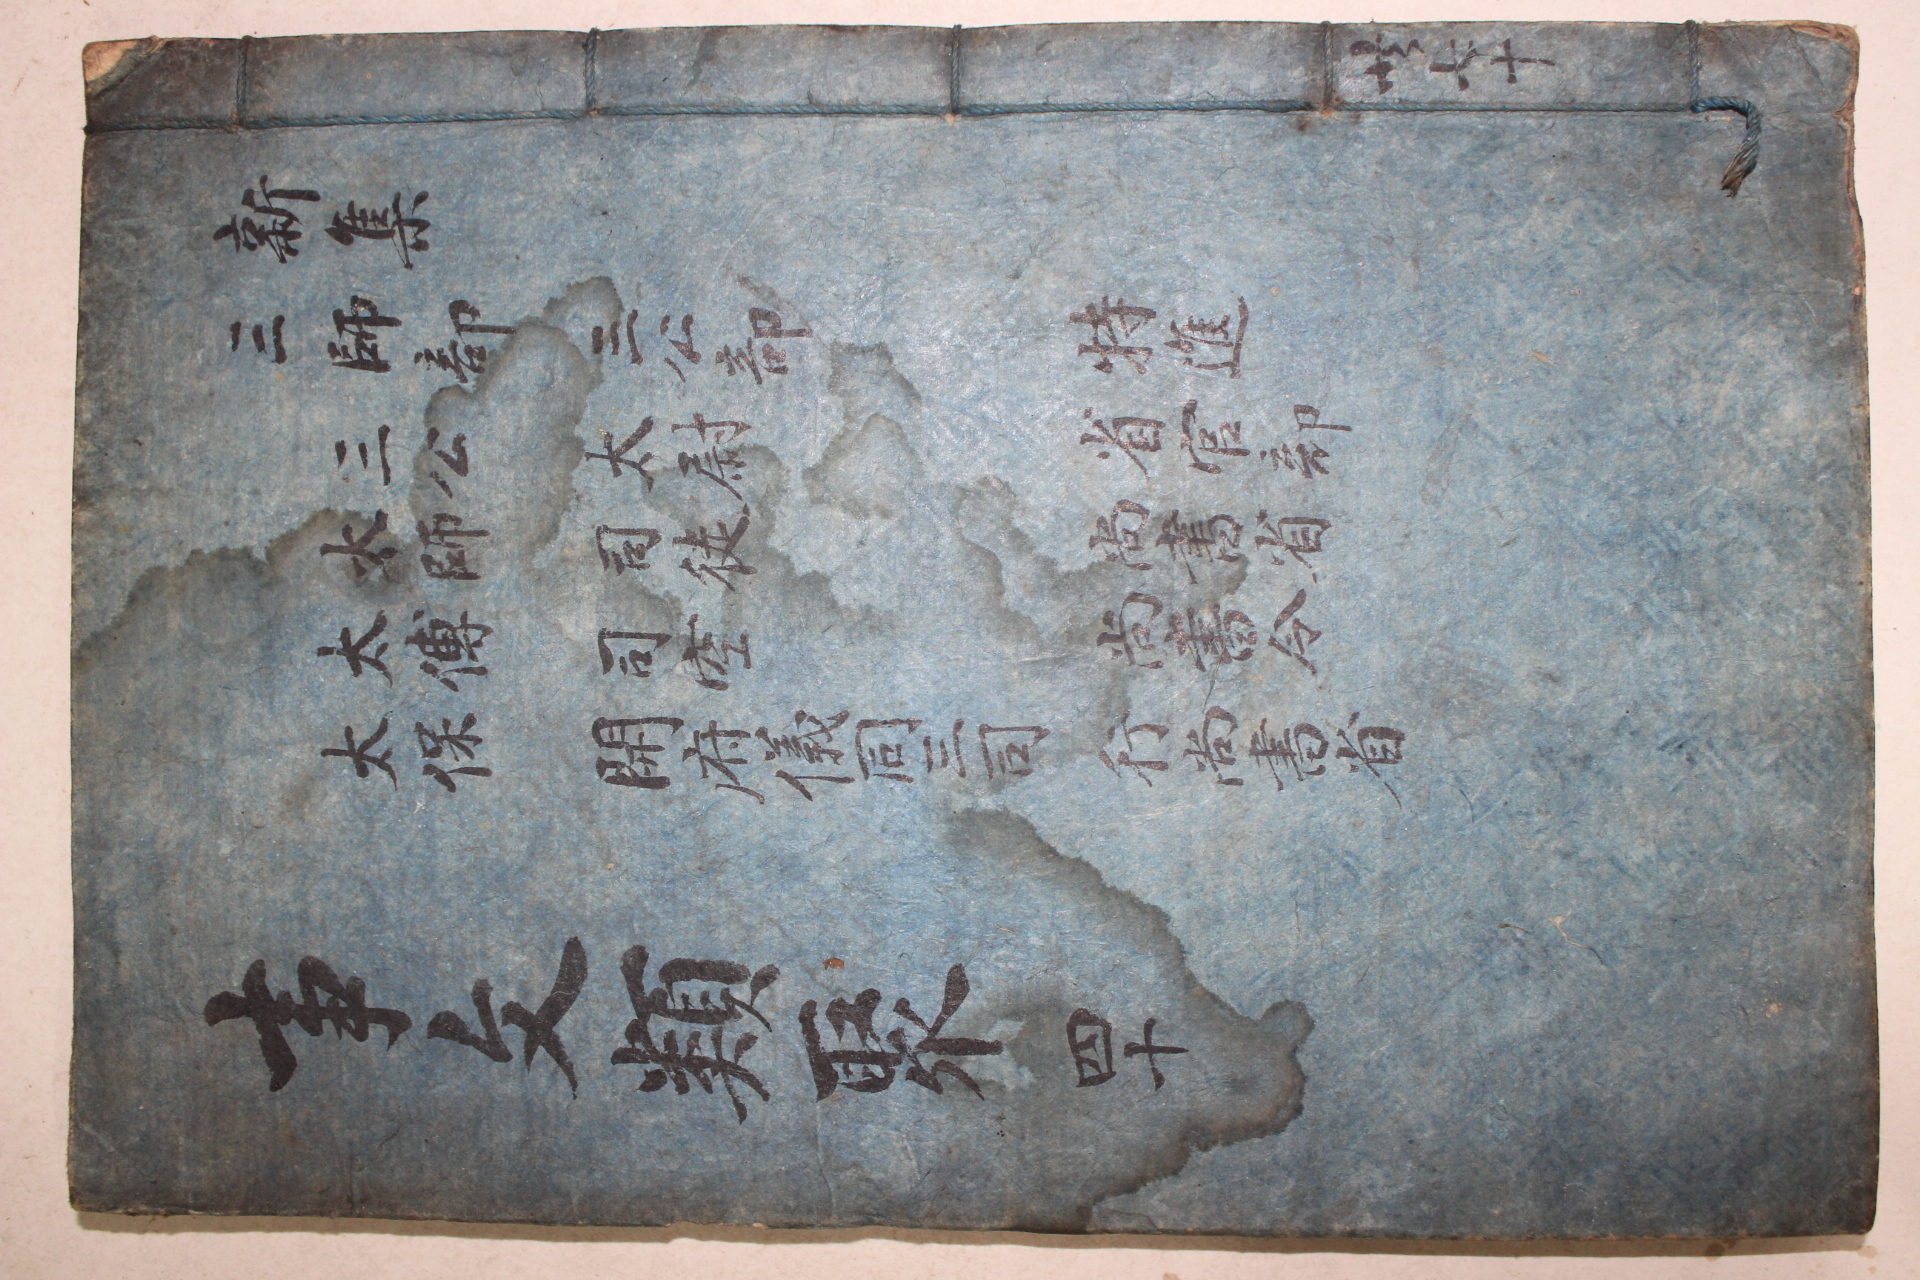 共六十
新集
三師部 三公部 特進
三公 太尉 省官部
太師 司徒 尚書省
太傅 司空 尚書令
太保 開府儀同三司 行尚書省
事文類聚 四十